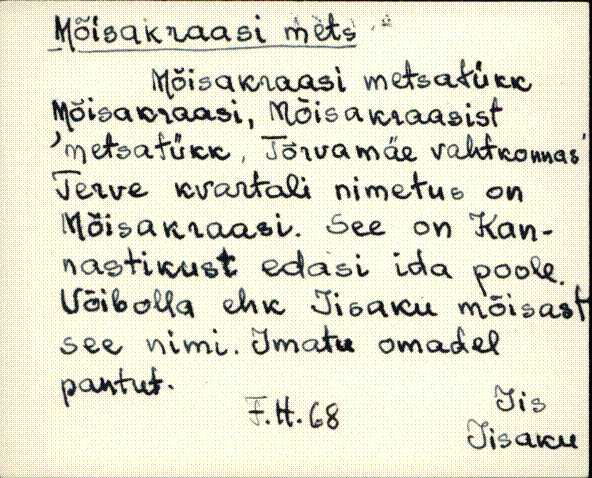 Mõisakraasi mets
Mõisakraasi metsatükk
Mõisakraasi, Mõisakraasist
'metsatükk, Tõrvamäe vahtkonnas'
Terve kvartali nimetus on
Mõisakraasi. See on Kan-
nastikust edasi ida poole.
Võibolla ehk Iisaku mõisast
see nimi. Imatu omadel
pantut.
F.H.68
Iis
Iisaku